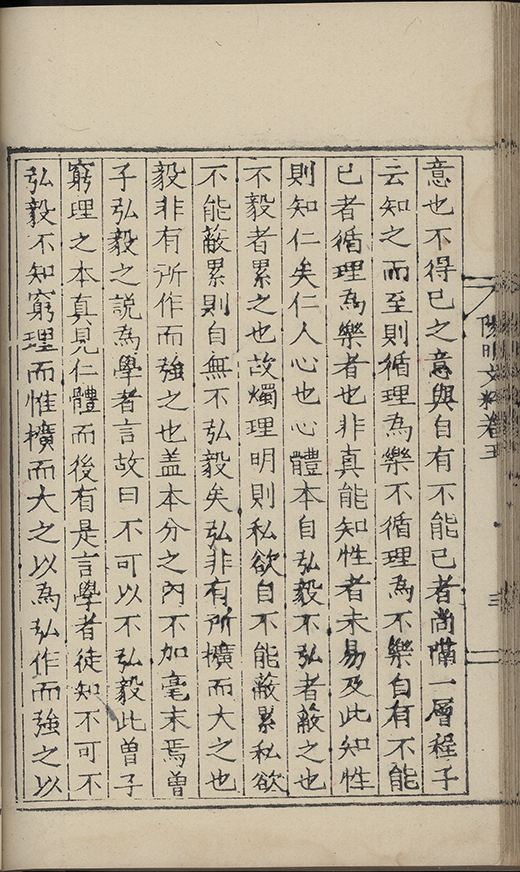 意也不得已之意與自有不能已者尚隔一層程子
云知之而至則循理為樂不循理為不樂自有不能
已者循理為樂者也非真能知性者未易及此知性
則知仁矣仁人心也心體本自弘毅不弘者蔽之也
不毅者累之也故燭理明則私欲自不能蔽累私欲
不能蔽累則自無不弘毅矣弘非有所擴而大之也
毅非有所作而強之也盖本分之內不加毫末焉曾
子弘毅之說為學者言故曰不可以不弘毅此曾子
窮理之本真見仁體而後有是言學者徒知不可不
弘毅不知窮理而惟擴而大之以為弘作而強之以
陽明文粹卷五
三